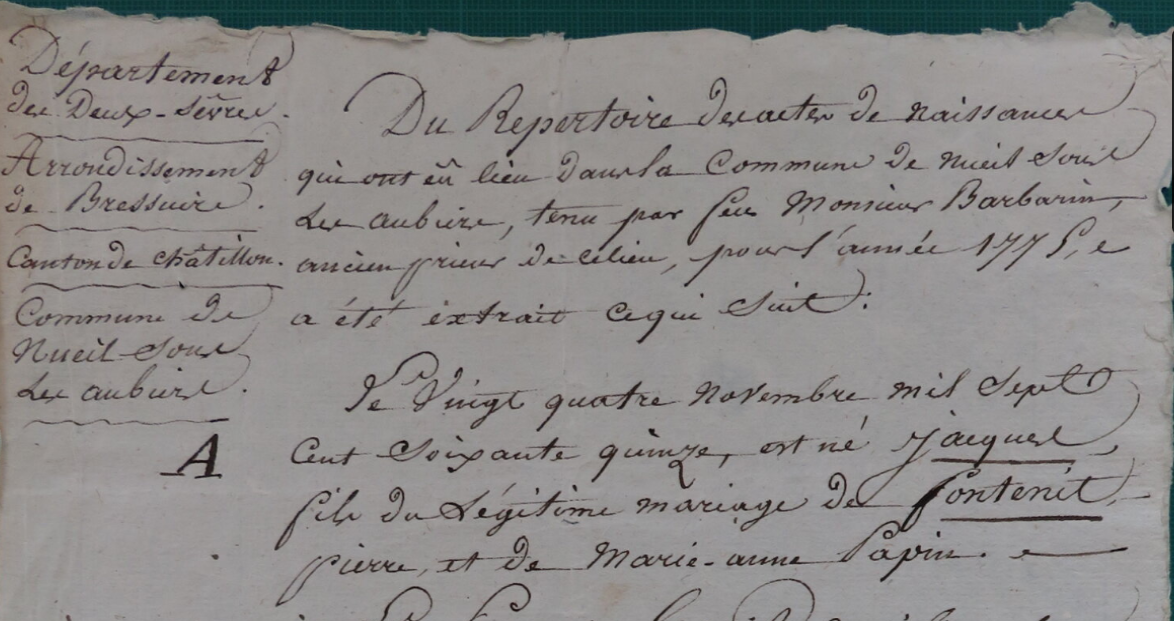 Département
des Deux-Sêvres.
Arrondissement
de Bressuire.
Canton de châtillon.
Commune de
Nueil Sous
Les aubiers.
A
Du Repertoire des actes de naissances
qui ont eû lieu dans la Commune de nueil Sous
Les aubiers, tenu par feu Monsieur Barbarin,
ancien prieur de celieu, pour l'année 1775, 
a été extrait cequi Suit:
Le Vingt quatre novembre mil Sept
Cent Soixante quinze, est né jacques,
fils du Légitime mariage de fontenit
pierre, et de Marie-anne Papin.